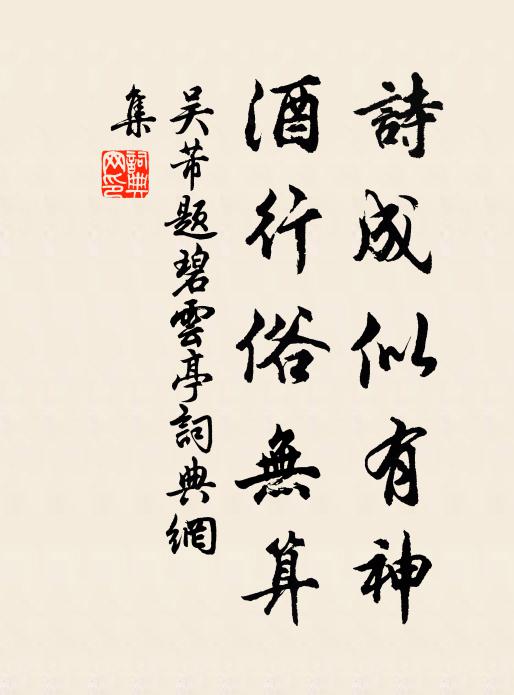 詩成似有神
酒行俗無算
吴芾題碧雲亭詞典網
集
詞典
网印